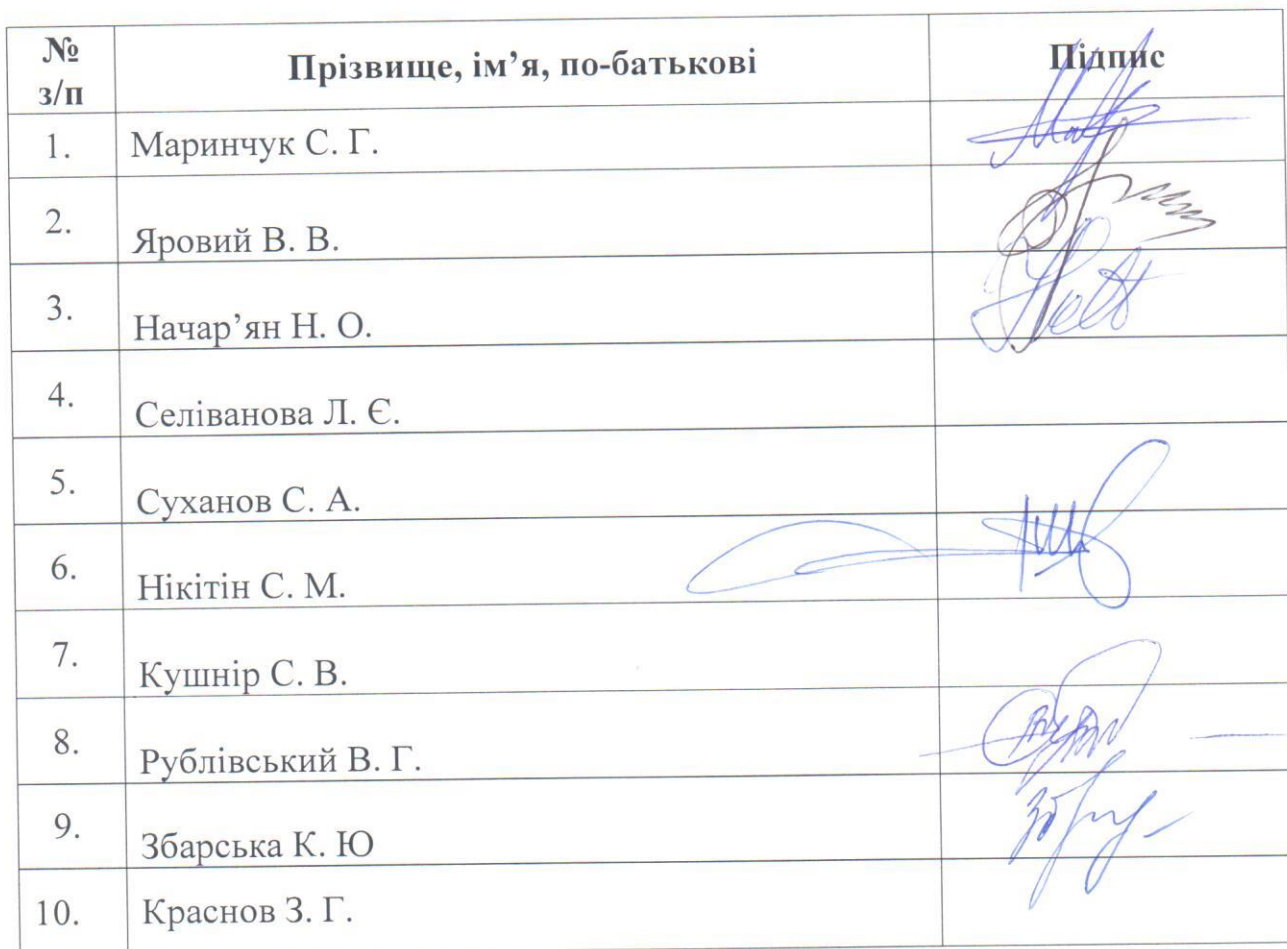 № з/п Прізвище, ім’я, по-батькові Підпис
1. Маринчук С. Г.
2. Яровий В. В.
3. Начар’ян Н. О.
4. Селіванова Л. Є.
5. Суханов С. А.
6. Нікітін С. М.
7. Кушнір С. В.
8. Рублівський В. Г.
9. Збарська К. Ю
10. Краснов З. Г.